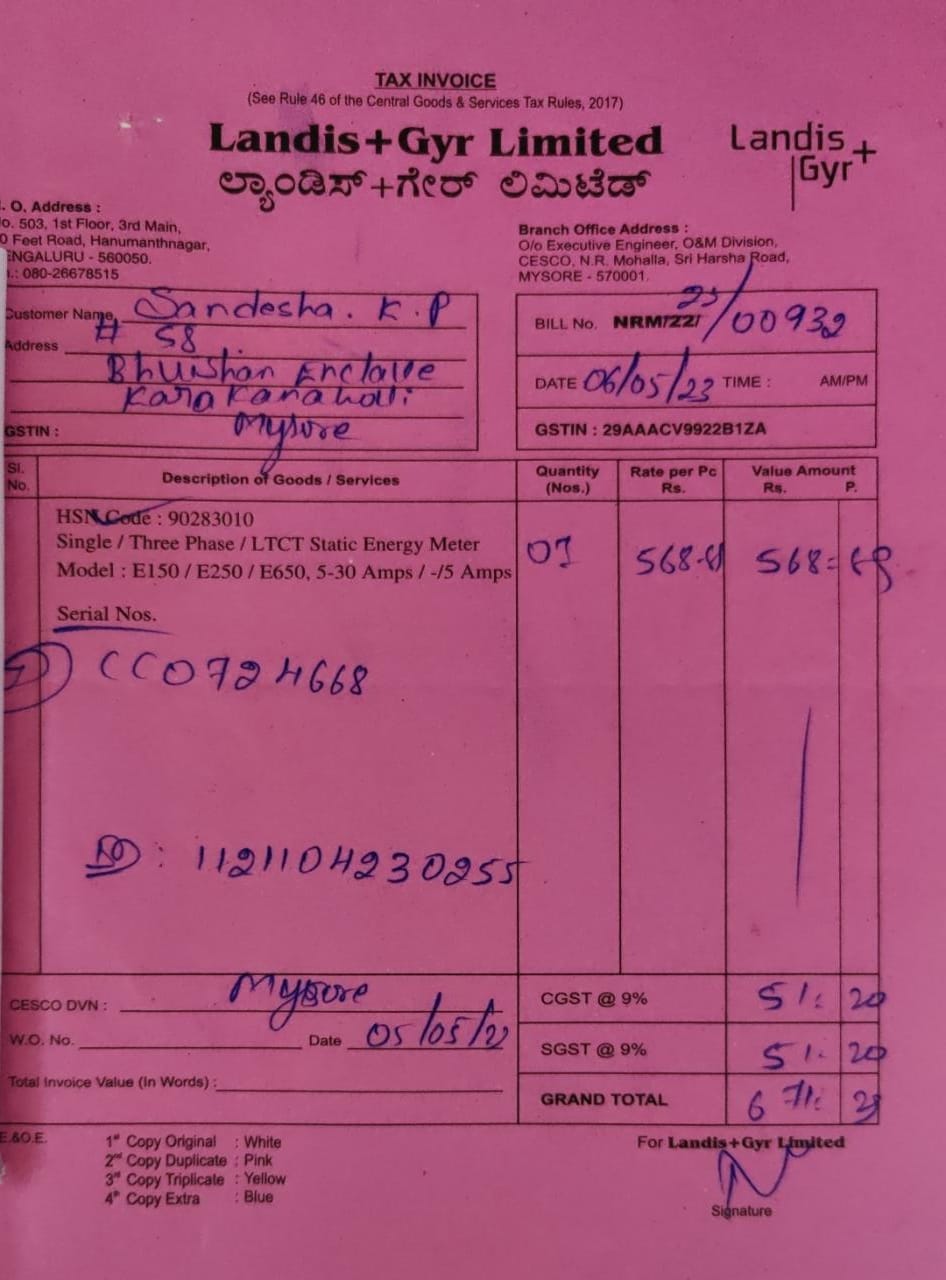 TAX INVOICE
(See Rule 46 of the Central Goods & Services Tax Rules, 2017)
Landis+Gyr Limited
Landis+
Gyr
ಲ್ಯಾಂಡಿಸ್+ಗೇರ್ ಲಿಮಿಟೆಡ್
. O. Address :
o. 503, 1st Floor, 3rd Main,
0 Feet Road, Hanumanthnagar,
ENGALURU - 560050.
.: 080-26678515
Branch Office Address :
O/o Executive Engineer, O&M Division,
CESCO, N.R. Mohalla, Sri Harsha Road,
MYSORE - 570001.
Customer Name Sandesha. K.P
Address # 58
Bhushan Enclave
Karakanahalli
Mysore
GSTIN :
BILL No. NRM/22/ 23/00932
DATE 06/05/23 TIME : AM/PM
GSTIN : 29AAACV9922B1ZA
Sl. No. Description of Goods / Services Quantity (Nos.) Rate per Pc Rs. Value Amount Rs. P.
HSN Code : 90283010
Single / Three Phase / LTCT Static Energy Meter
Model : E150 / E250 / E650, 5-30 Amps / -/5 Amps
01 568- 568=
Serial Nos.
1) CC0724668
: 1121104230255
CESCO DVN : Mysore
W.O. No. Date 05/05/
Total Invoice Value (In Words) :
CGST @ 9% 51: 20
SGST @ 9% 51: 20
GRAND TOTAL 671:
E.&O.E.
1st Copy Original : White
2nd Copy Duplicate : Pink
3rd Copy Triplicate : Yellow
4th Copy Extra : Blue
For Landis+Gyr Limited
Signature